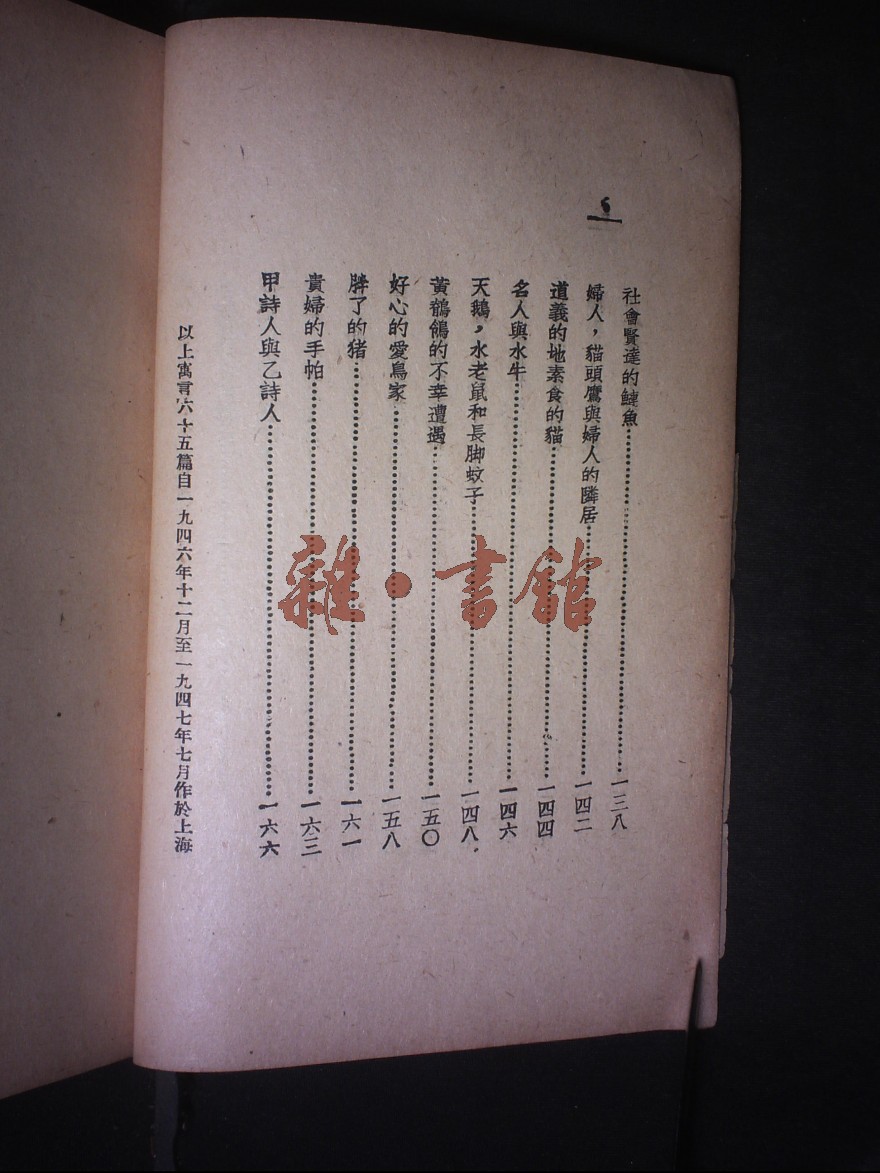 6
社會賢達的鰱魚……一三八
婦人，貓頭鷹與婦人的隣居……一四二
道義的地素食的貓……一四四
名人與水牛……一四六
天鵝，水老鼠和長脚蚊子……一四八
黃鶺鴒的不幸遭遇……一五〇
好心的愛鳥家……一五八
胖了的猪……一六一
貴婦的手帕……一六三
甲詩人與乙詩人……一六六
以上寓言六十五篇自一九四六年十二月至一九四七年七月作於上海
雜·書館